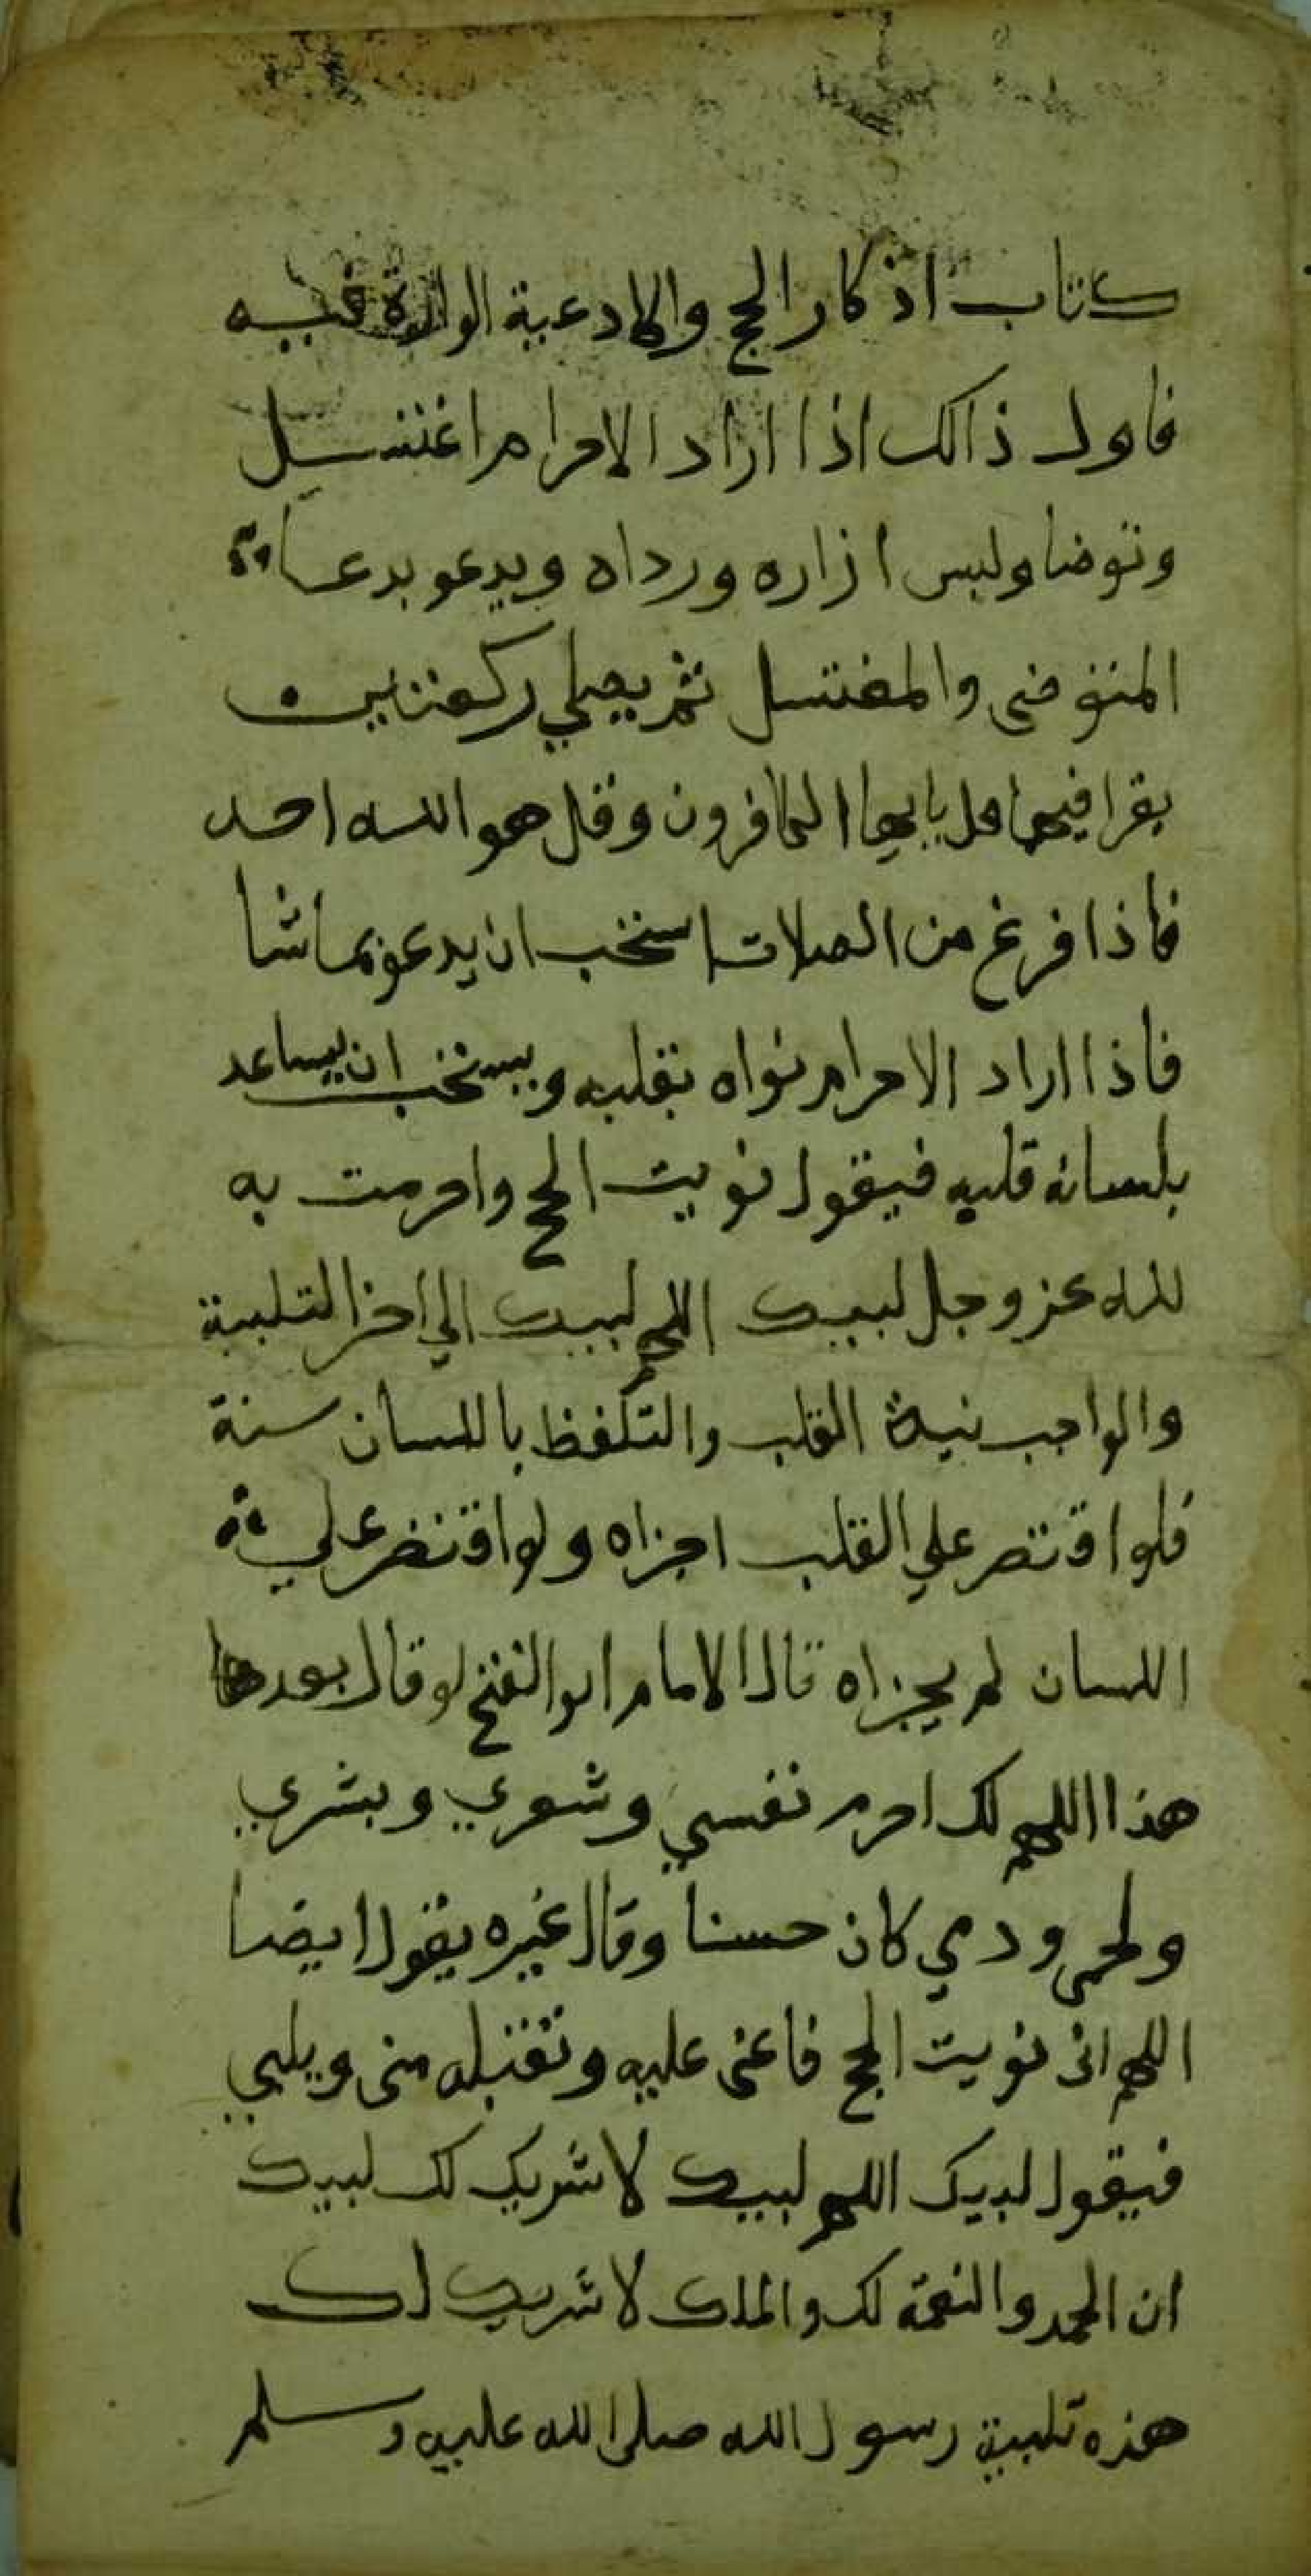 كتاب اذكار الحج والادعية الواردة فيه
فاول ذالك اذا اراد الاحرام اغتسل
وتوضا ولبس ازاره ورداه ويدعو بدعاء
المتوضى والمغتسل ثم يصلي ركعتين
يقرا فيهما قل يايها الكافرون وقل هو الله احد
فاذا فرغ من الصلات استحب ان يدعو بما شا
فاذا اراد الاحرام نواه بقلبه ويستحب ان يساعد
بلسانه قلبه فيقول نويت الحج واحرمت به
لله عز وجل لبيك اللهم لبيك الي اخر التلبية
والواجب نية القلب والتلفظ باللسان سنة
فلو اقتصر علي القلب اجزاه ولو اقتصر علي
اللسان لم يجزاه قال الامام ابو الفتح لو قال بعدها
هذا اللهم لك احرم نفسي وشعري وبشري
ولحمى ودمي كان حسنا وقال غيره يقول ايضا
اللهم انى نويت الحج فاعنى عليه وتقبله منى ويلبي
فيقول لبيك اللهم لبيك لا شريك لك لبيك
ان الحمد والنعمة لك والملك لا شريك لك
هذه تلبية رسول الله صلى الله عليه وسلم